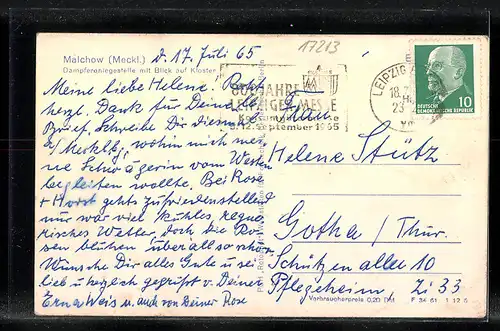 Malchow (Meckl.)
Dampferanlegestelle mit Blick auf Kloster
d. 17. Juli 65
17213
Meine liebe Helene!
herzl. Dank für Deinen
Brief. Schreibe Dir diesmal
a/ Meckl., wohin mich mei
ne Schwägerin vom Westen
begleiten wollte. Bei Rose
+ Horst gehts zufriedenstellend
nur war viel kühles, regne-
risches Wetter, doch die Ro-
sen blühen überall so schön.
Wünsche Dir alles Gute u. sei
lieb u. herzlich gegrüßt v. Deiner
Erna Weis u. auch von Deiner Rose
800 JAHRE
LEIPZIGER MESSE
5.-12. September 1965
LEIPZIG
18.7.
23
DEUTSCHE
DEMOKRATISCHE REPUBLIK
10
Frau
Helene Stütz
Gotha / Thür.
Schützen allee 10
Pflegeheim Zi 33
Verbraucherpreis 0,20 DM